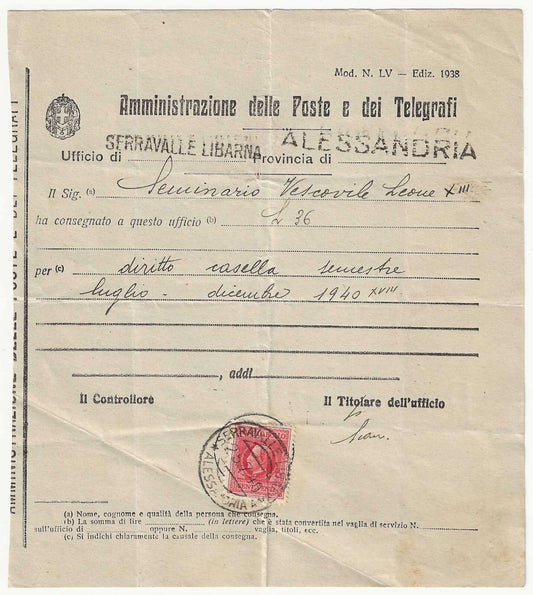 Mod. N. LV — Ediz. 1938
Amministrazione delle Poste e dei Telegrafi
Ufficio di SERRAVALLE LIBARNA Provincia di ALESSANDRIA
Il Sig. (a) Seminario Vescovile Leone XIII
ha consegnato a questo ufficio (b) L 36
per (c) diritto casella semestre
luglio - dicembre 1940 XVIII
, addì
Il Controllore Il Titolare dell'ufficio
SERRAVALLE
ALESSANDRIA
(a) Nome, cognome e qualità della persona che consegna.
(b) La somma di lire (in lettere) che è stata convertita nel vaglia di servizio N.
sull'ufficio di oppure N. vaglia, titoli, ecc.
(c) Si indichi chiaramente la causale della consegna.
AMMINISTRAZIONE DELLE POSTE E DEI TELEGRAFI